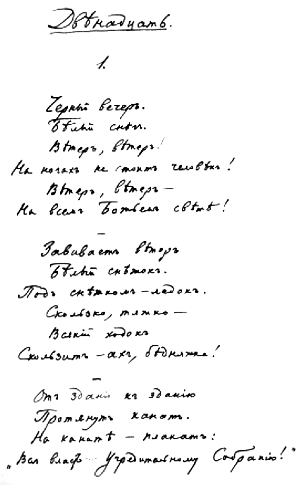 Двѣнадцать.
1.
Черный вечеръ.
Бѣлый снѣгъ.
Вѣтеръ, вѣтеръ!
На ногахъ не стоитъ человѣкъ!
Вѣтеръ, вѣтеръ –
На всемъ Божьемъ свѣтѣ!
–
Завиваетъ вѣтеръ
Бѣлый снѣжокъ.
Подъ снѣжкомъ – ледокъ.
Скользко, тяжко –
Всякій ходокъ
Скользитъ – ахъ, бѣдняжка!
–
Отъ зданія къ зданію
Протянутъ канатъ.
На канатѣ – плакатъ:
„Вся власть Учредительному Собранію!"